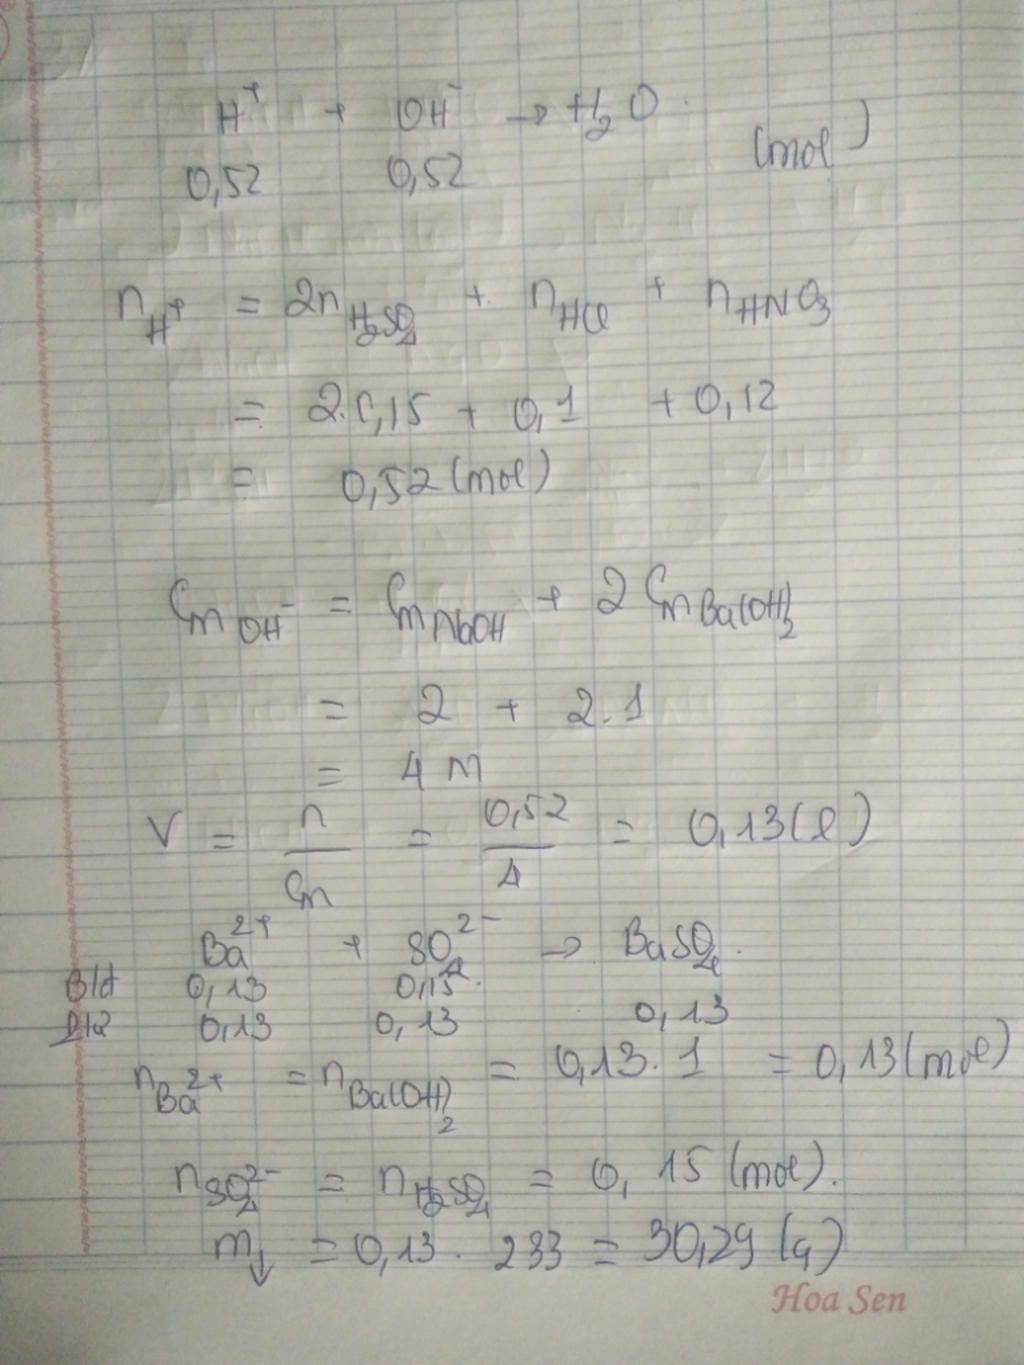 H⁺ + OH⁻ → H₂O
0,52 0,52 (mol)
n_H⁺ = 2n_H₂SO₄ + n_HCl + n_HNO₃
= 2.0,15 + 0,1 + 0,12
= 0,52 (mol)
C_M OH⁻ = C_M NaOH + 2 C_M Ba(OH)₂
= 2 + 2.1
= 4 M
V = n/C_M = 0,52/4 = 0,13 (l)
Ba²⁺ + SO₄²⁻ → BaSO₄.
Bđ 0,13 0,15
0,13 0,13 0,13
n_Ba²⁺ = n_Ba(OH)₂ = 0,13. 1 = 0,13 (mol)
n_SO₄²⁻ = n_H₂SO₄ = 0,15 (mol).
m↓ = 0,13. 233 = 30,29 (g)
Hoa Sen